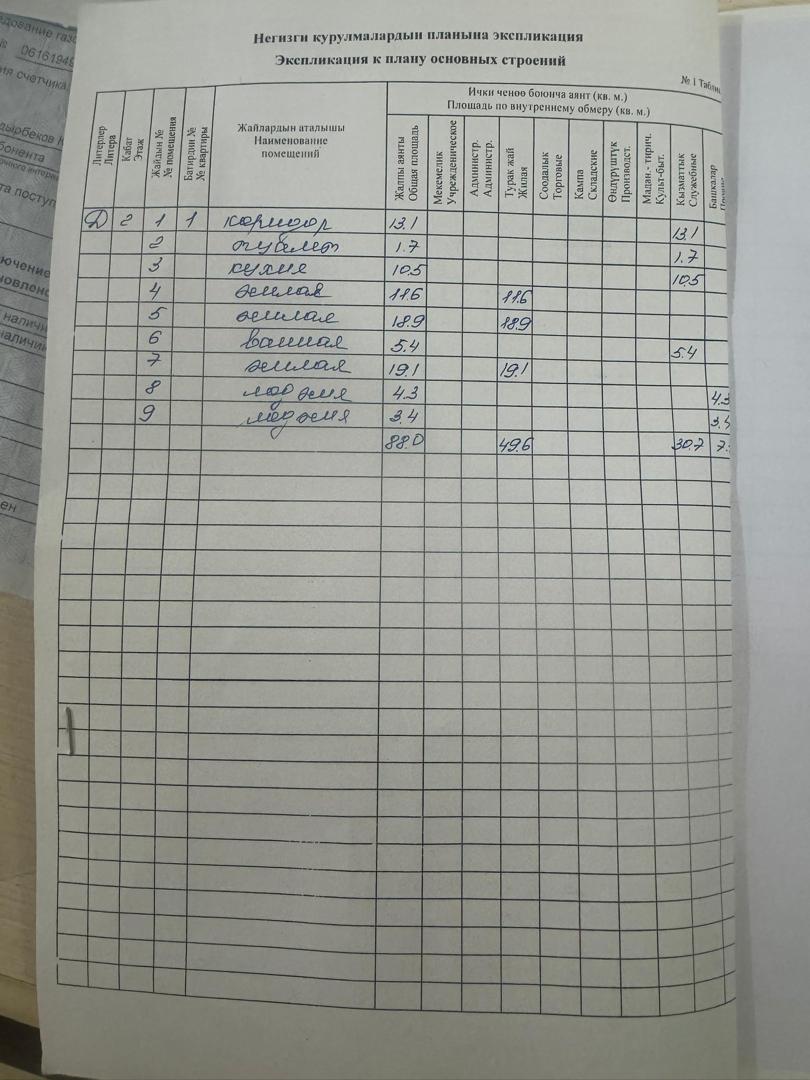 Негизги курулмалардын планына экспликация
Экспликация к плану основных строений
№ 1
Ички ченөө боюнча аянт (кв. м.)
Площадь по внутреннему обмеру (кв. м.)
Литерлер Литера
Кабат Этаж
Жайдын № № помещения
Батирдин № № квартиры
Жайлардын аталышы Наименование помещений
Жалпы аянты Общая площадь
Мекемелик Учрежденическое
Администр. Администр.
Турак жай Жилая
Соодалык Торговые
Кампа Складские
Өндүрүштүк Производст.
Мадан.- тирич. Культ-быт.
Кызматтык Служебные
Башкалар
Д 2 1 1 коридор 13.1 13.1
2 туалет 1.7 1.7
3 кухня 10.5 10.5
4 жилая 11.6 11.6
5 жилая 18.9 18.9
6 ванная 5.4 5.4
7 жилая 19.1 19.1
8 лоджия 4.3 4.3
9 лоджия 3.4 3.4
88.0 49.6 30.7 7.
0616194
счетчика